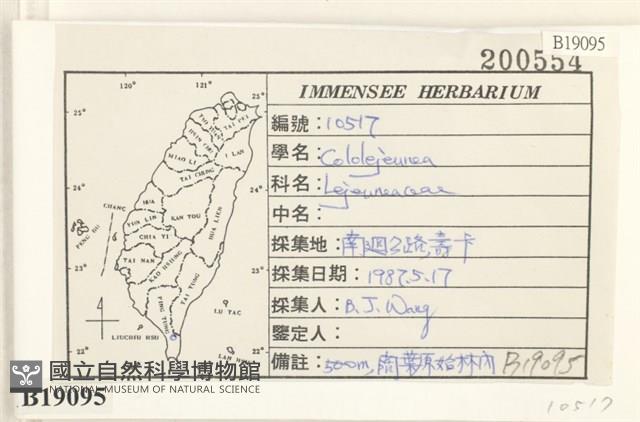 B19095
200554
IMMENSEE HERBARIUM
編號：10517
學名：Cololejeunea
科名：Lejeuneaceae
中名：
採集地：南迴公路,壽卡
採集日期：1987.5.17
採集人：B.J. Wang
鑒定人：
備註：500m,闊葉原始林內 B19095
120°
121°
25°
25°
TAI PEI
I LAN
MIAO LI
TAI CHUNG
24°
24°
CHANG
HUA
PENG HU
YUN LIN
KAN TOU
HUA LIEN
CHIA YI
TAI NAN
23°
23°
KAO HSIUNG
TAI TUNG
PING TUNG
LU TAO
LIUCHIU HSU
22°
22°
國立自然科學博物館
NATIONAL MUSEUM OF NATURAL SCIENCE
B19095
10517